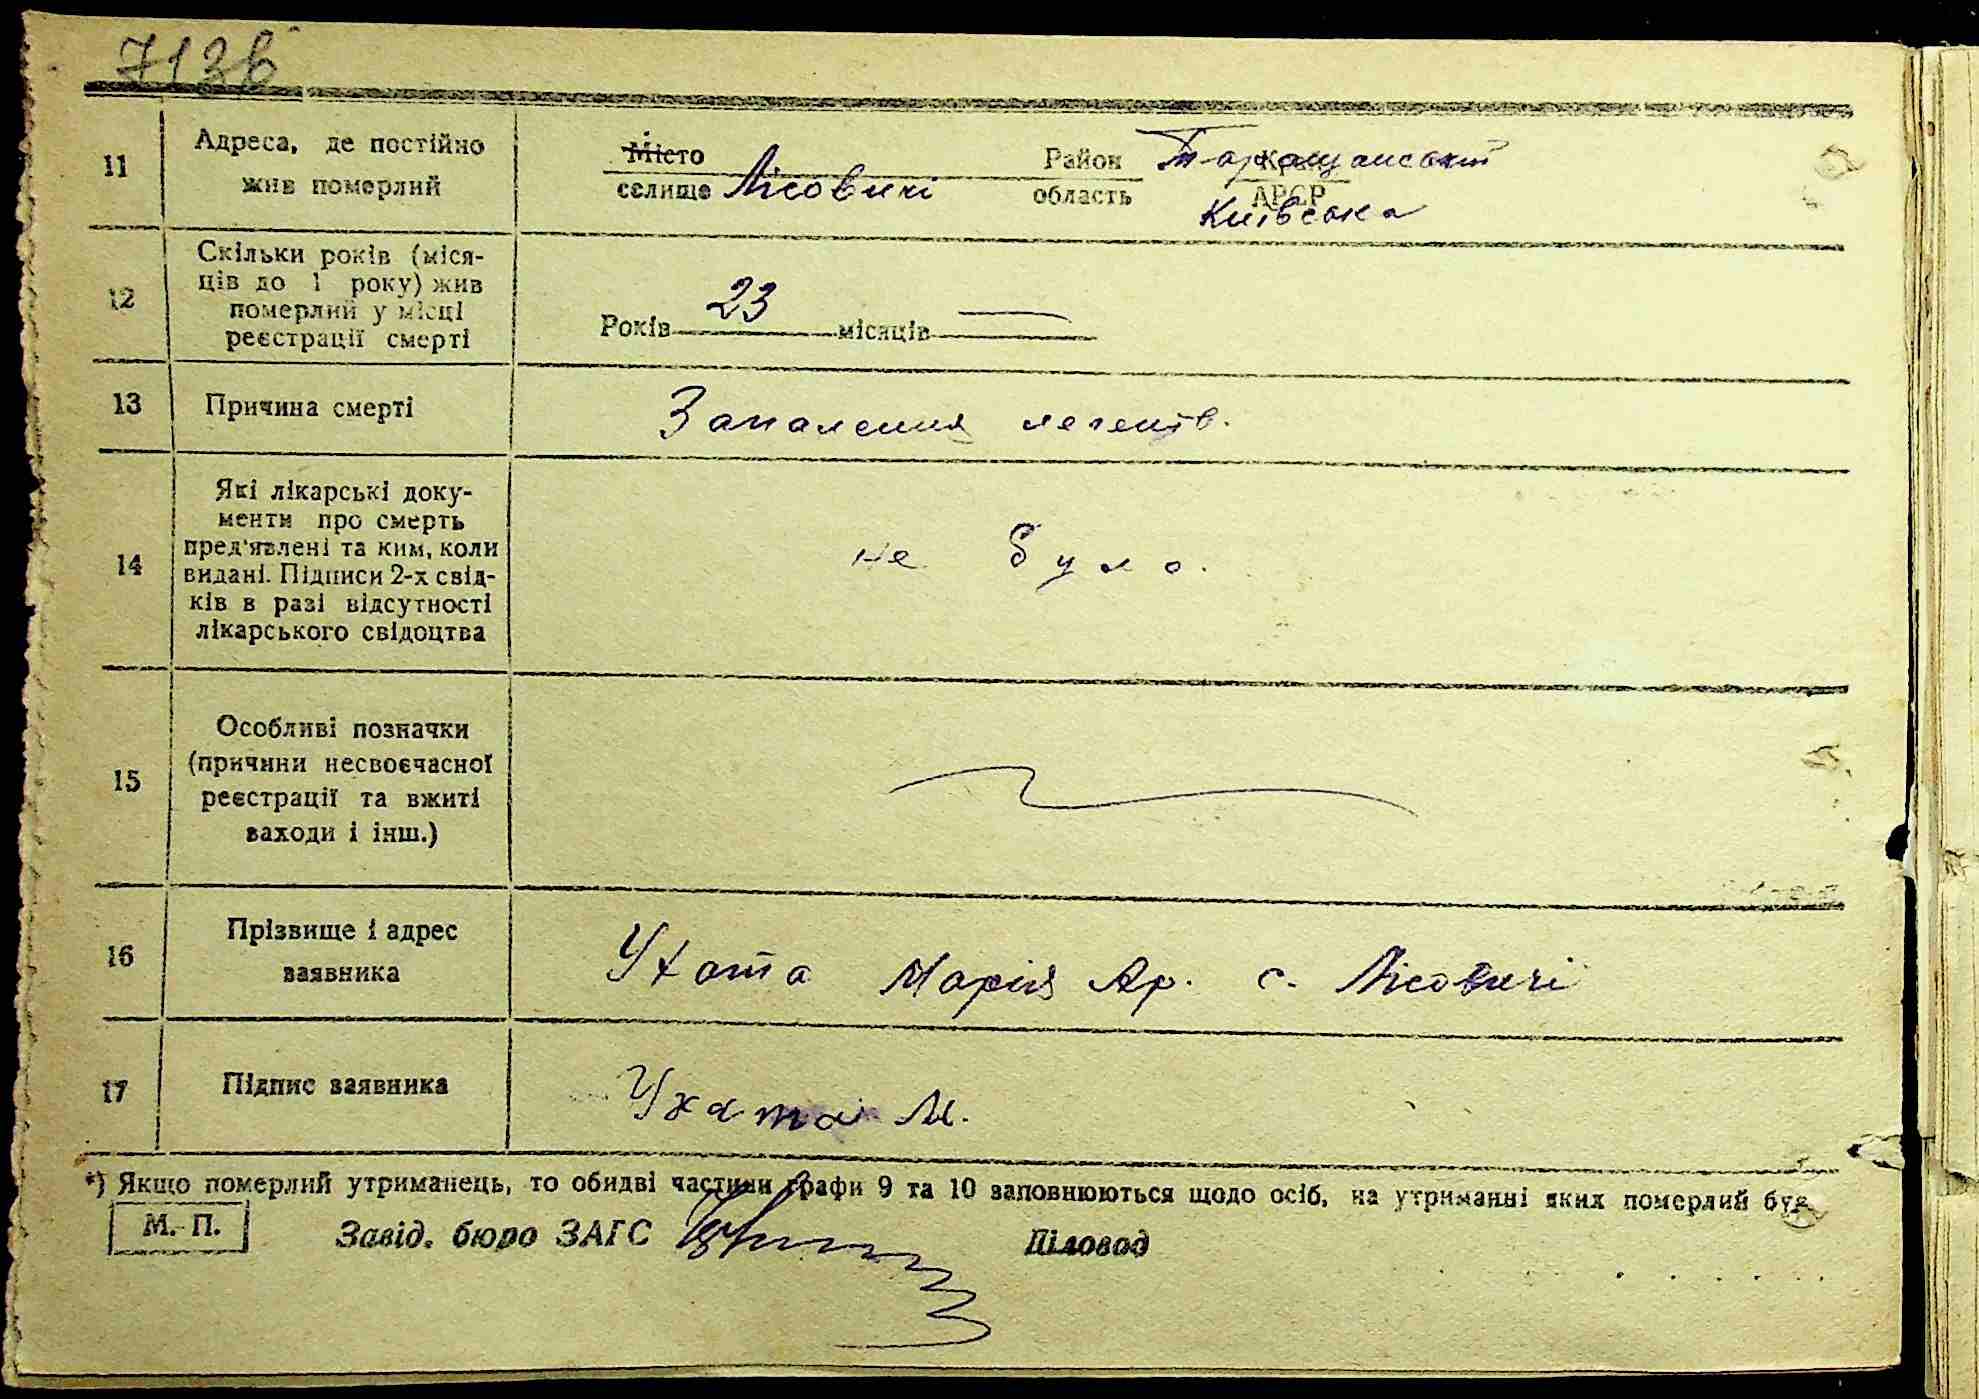 713в
11 Адреса, де постійно жив померлий
Місто селище Лісовичі Район область Таращанський Край АРСР Київська
12 Скільки років (міся-
ців до 1 року) жив
померлий у місці
реєстрації смерті
Років 23 місяців —
13 Причина смерті Запалення легенів.
14 Які лікарські доку-
менти про смерть
пред'явлені та ким, коли
видані. Підписи 2-х свід-
ків в разі відсутності
лікарського свідоцтва
не було.
15 Особливі позначки
(причини несвоєчасної
реєстрації та вжиті
заходи і інш.)
16 Прізвище і адрес
заявника
Ухата Марія Яр. с. Лісовичі
17 Підпис заявника Ухата М.
*) Якщо померлий утриманець, то обидві частини графи 9 та 10 заповнюються щодо осіб, на утриманні яких померлий був
М. П. Завід. бюро ЗАГС Діловод